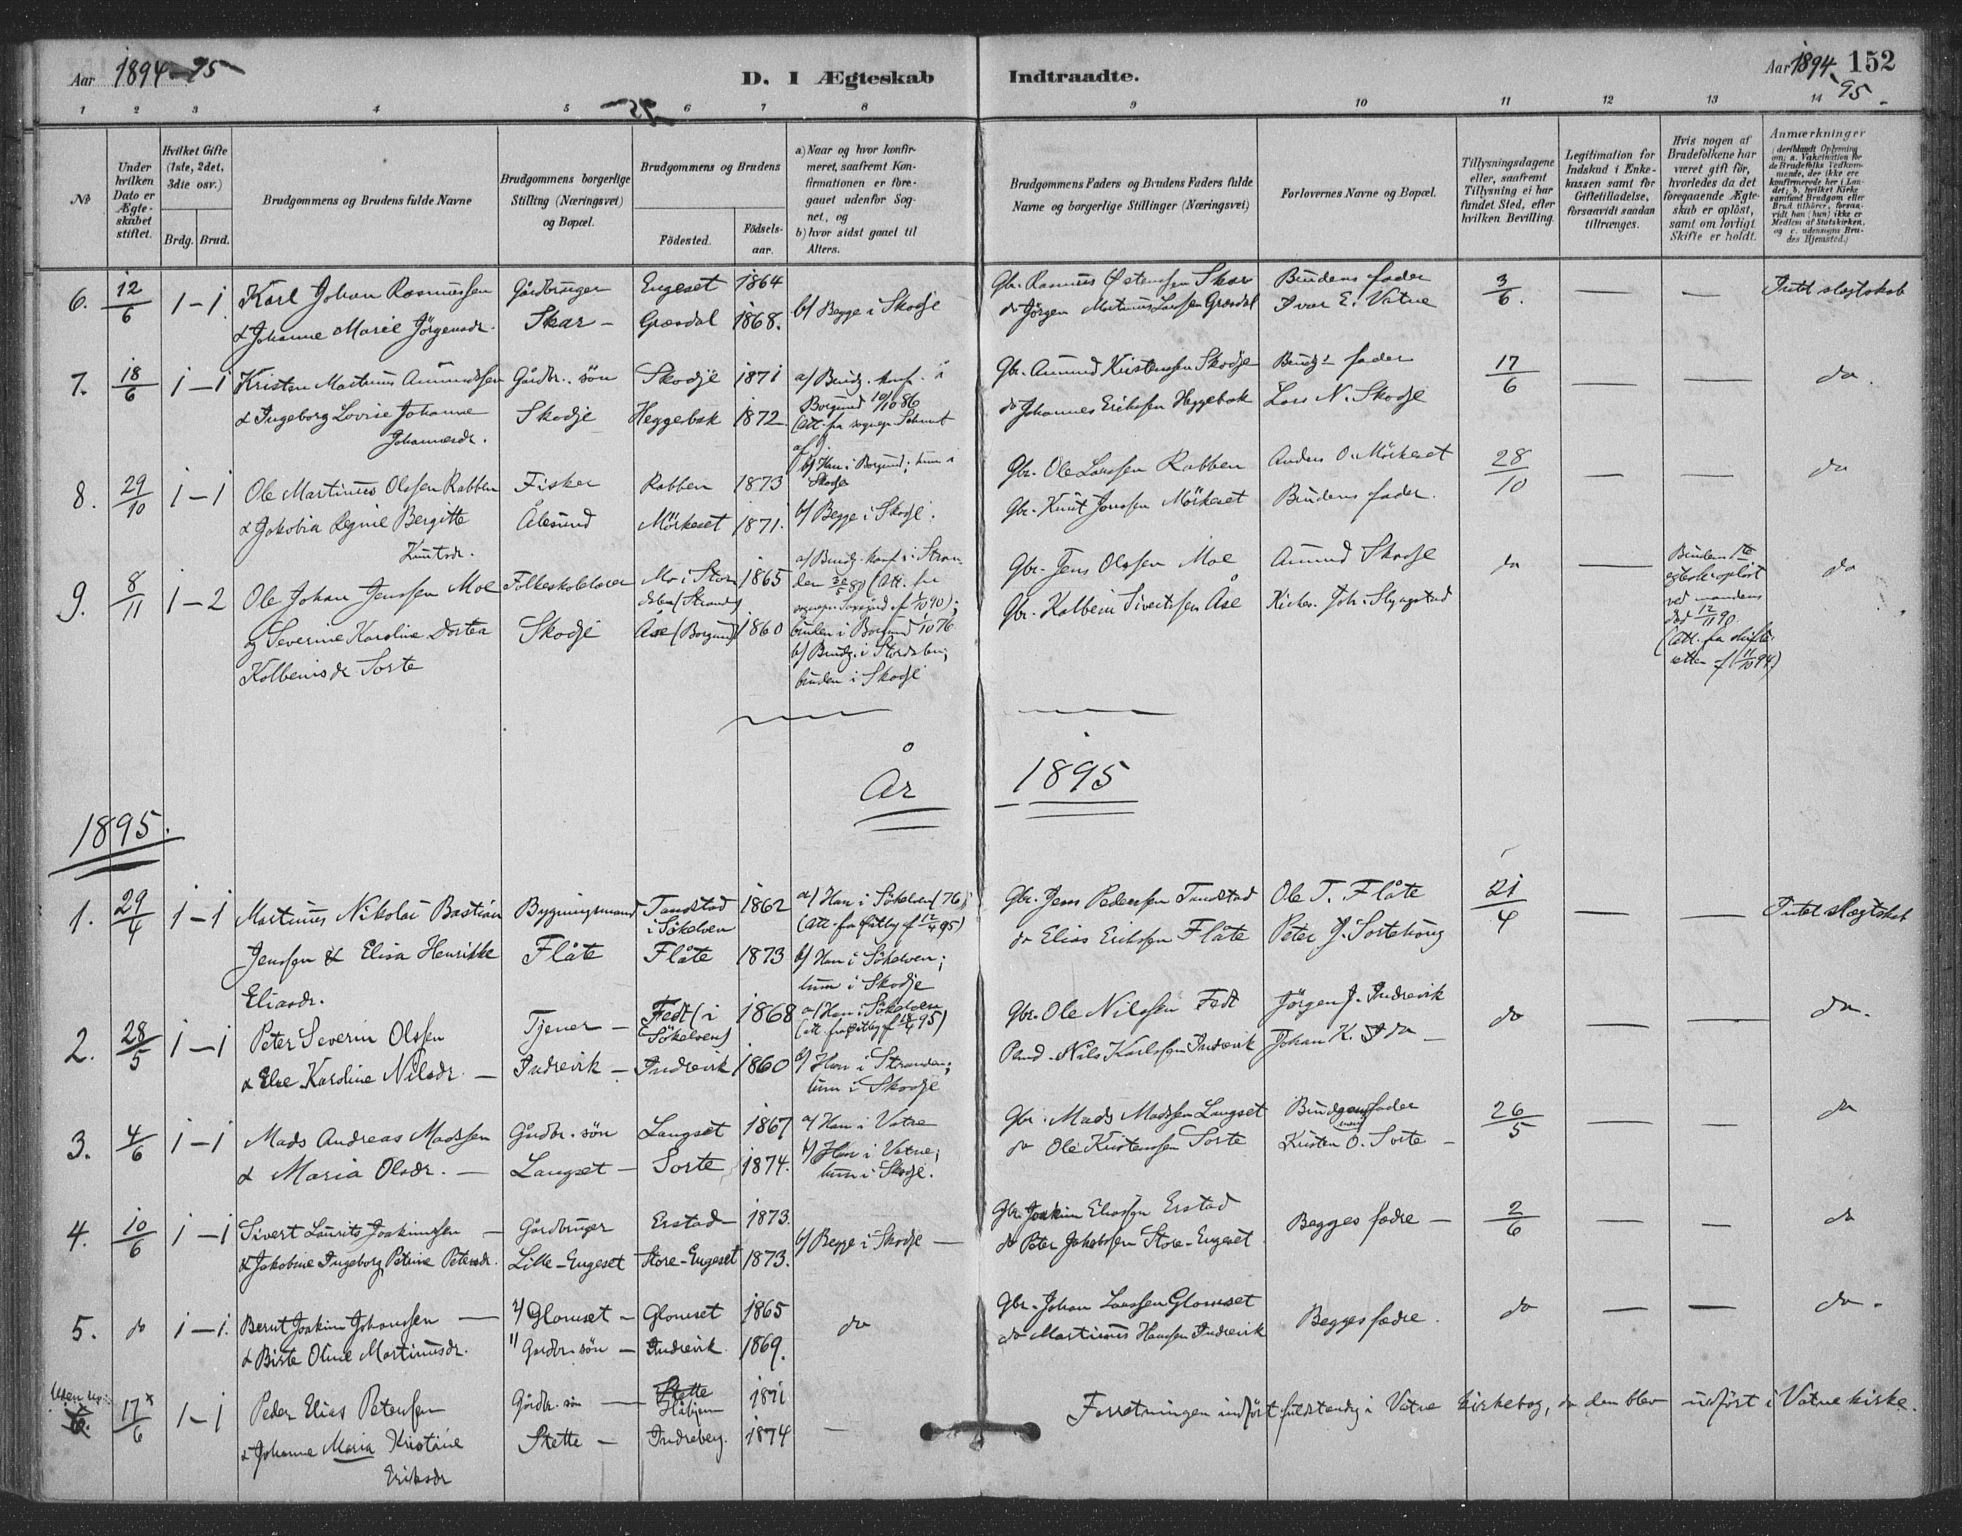 Aar 1894-95
D. I Ægteskab Indtraadte.
Aar 1894 152
95
1 2 3 4 5 6 7 8 9 10 11 12 13 14
№
Under hvilken Dato er Ægteskabet stiftet.
Hvilket Gifte (1ste, 2det, 3dte osv.)
Brdg. Brud.
Brudgommens og Brudens fulde Navne
Brudgommens borgerlige Stilling (Næringsvei) og Bopæl.
Brudgommens og Brudens
Fødested. Fødselsaar.
a) Naar og hvor konfirmeret, saafremt Konfirmationen er foregaaet udenfor Sognet, og
b) hvor sidst gaaet til Alters.
Brudgommens Faders og Brudens Faders fulde Navne og borgerlige Stillinger (Næringsvei)
Forlovernes Navne og Bopæl.
Tillysningsdagene eller, saafremt Tillysning ei har fundet Sted, efter hvilken Bevilling.
Legitimation for Indskud i Enkekassen samt for Giftetilladelse, forsaavidt saadan tiltrænges.
Hvis nogen af Brudefolkene har været gift før, hvorledes da det foregaaende Ægteskab er opløst, samt om lovligt Skifte er holdt.
Anmærkninger
6. 12/6 1-1 Karl Johan Rasmussen Gårdbruger Engeset 1864 Gbr. Rasmus Østensen Skar Brudens fader 3/6. — — Intet slegtskab
& Johanne Marie Jörgensdr. Skar - Græsdal 1868. b) Begge i Skodje do Jörgen Martinus Larssen Græsdal Ivar E. Vatne
7. 18/6 1-1 Kristen Martinus Amundssen Gårdbr. sön Skodje 1871 a) Brudg. konf. i Gbr. Amund Kristenssen Skodje Brudg.s fader 17/6 — — do.
& Ingeborg Lovise Johanne Skodje Heggebak 1872 Borgund 10/10 86 do Johannes Erikssen Heggebak Lars N. Skodje
Johannesdr.
b) Han i Borgund; hun i Skodje
8. 29/10 1-1 Ole Martinus Olssen Rabben Fisker Rabben 1873 Gbr. Ole Larssen Rabben Anders O. Mörkeset 28/10 — — do
& Jakobia Regine Bergitte Ålesund Mörkeset 1871. b) Begge i Skodje. Gbr. Knut Jonssen Mörkeset Brudens fader.
Knutsdr.
9. 8/11 1-2 Ole Johan Jenssen Moe Folkeskolelærer Mo i Stordalen (Stranda) 1865 a) Brudg. konf. i Stranden Gbr. Jens Olssen Moe Amund Skodje do — do
og Severine Karoline Dortea Skodje Åse (Borgund) 1860 bruden i Borgund 1/10 76. Gbr. Kolbein Sivertssen Åse
Kolbeinsdr Sorte b) Brudg. i Stordalen; bruden i Skodje
Brudens 1te egteskap opløst ved mandens død 12/11 90.
År 1895
1895.
1. 29/4 1-1 Martinus Nikolai Bastian Bygningsmand Tandstad i Sökelven 1862 a) Han i Sökelven (76); Gbr. Jens Pederssen Tandstad Ole T. Flåte 21/4 — — Intet slegtskab
Jenssen & Elisa Henrikke Flåte Flåte 1873 b) Han i Sökelven; hun i Skodje do Elias Erikssen Flåte Peter J. Sortehoug
Eliasdr.
2. 28/5 1-1 Peter Severin Olssen Tjener - Fedt (i Sökelven) 1868 a) Han i Sökelven Gbr. Ole Nilssen Fedt Jörgen J. Indrevik do — — do.
& Else Karoline Nilsdr. — Indrevik - Indrevik 1860 b) Han i Stranden; hun i Skodje Nils Karlssen Indrevik Johan K. do —
3. 4/6 1-1 Mads Andreas Madssen Gårdbr. sön Langset 1867 a) Han i Vatne Gbr. Mads Madssen Langset Brudgommens fader 26/5 — — do
& Maria Olsdr. — Langset - Sorte 1874. b) Han i Vatne; hun i Skodje. do Ole Kristenssen Sorte Kristen O. Sorte —
4. 10/6 1-1 Sivert Laurits Joakimssen — Gårdbruger Erstad 1873. b) Begge i Skodje — Gbr. Joakim Eliassen Erstad Begges fædre — 2/6 — — do
& Jakobine Ingeborg Petrine Petersdr. Lille-Engeset Store-Engeset 1873. do Peter Jakobssen Store-Engeset
5. do 1-1. Bernt Joakim Johanssen — Glomset - Glomset 1865 do Gbr. Johan Larssen Glomset Begges fædre. do — — do.
& Birte Oline Martinusdr. Gardbr. sön - Indrevik 1869. do Martinus Hanssen Indrevik
Uden no: 6. 17/6 x 1-1 Peder Elias Peterssen Gårdbr. sön — Stette Håbjørn 1871 Forretningen indført fuldstændig i Vatne kirkebog, da den blev udført i Vatne kirke.
& Johanne Maria Kristine Stette - Indreberg. 1874 —
Eriksdr